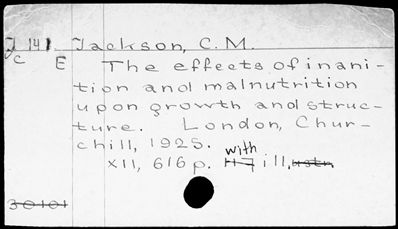 J 141 Jackson, C.M.
C E The effects of inani-
tion and malnutrition
upon growth and struc-
ture. London, Chur-
chill, 1925.
XII, 616 p. with 117 ill,
30101